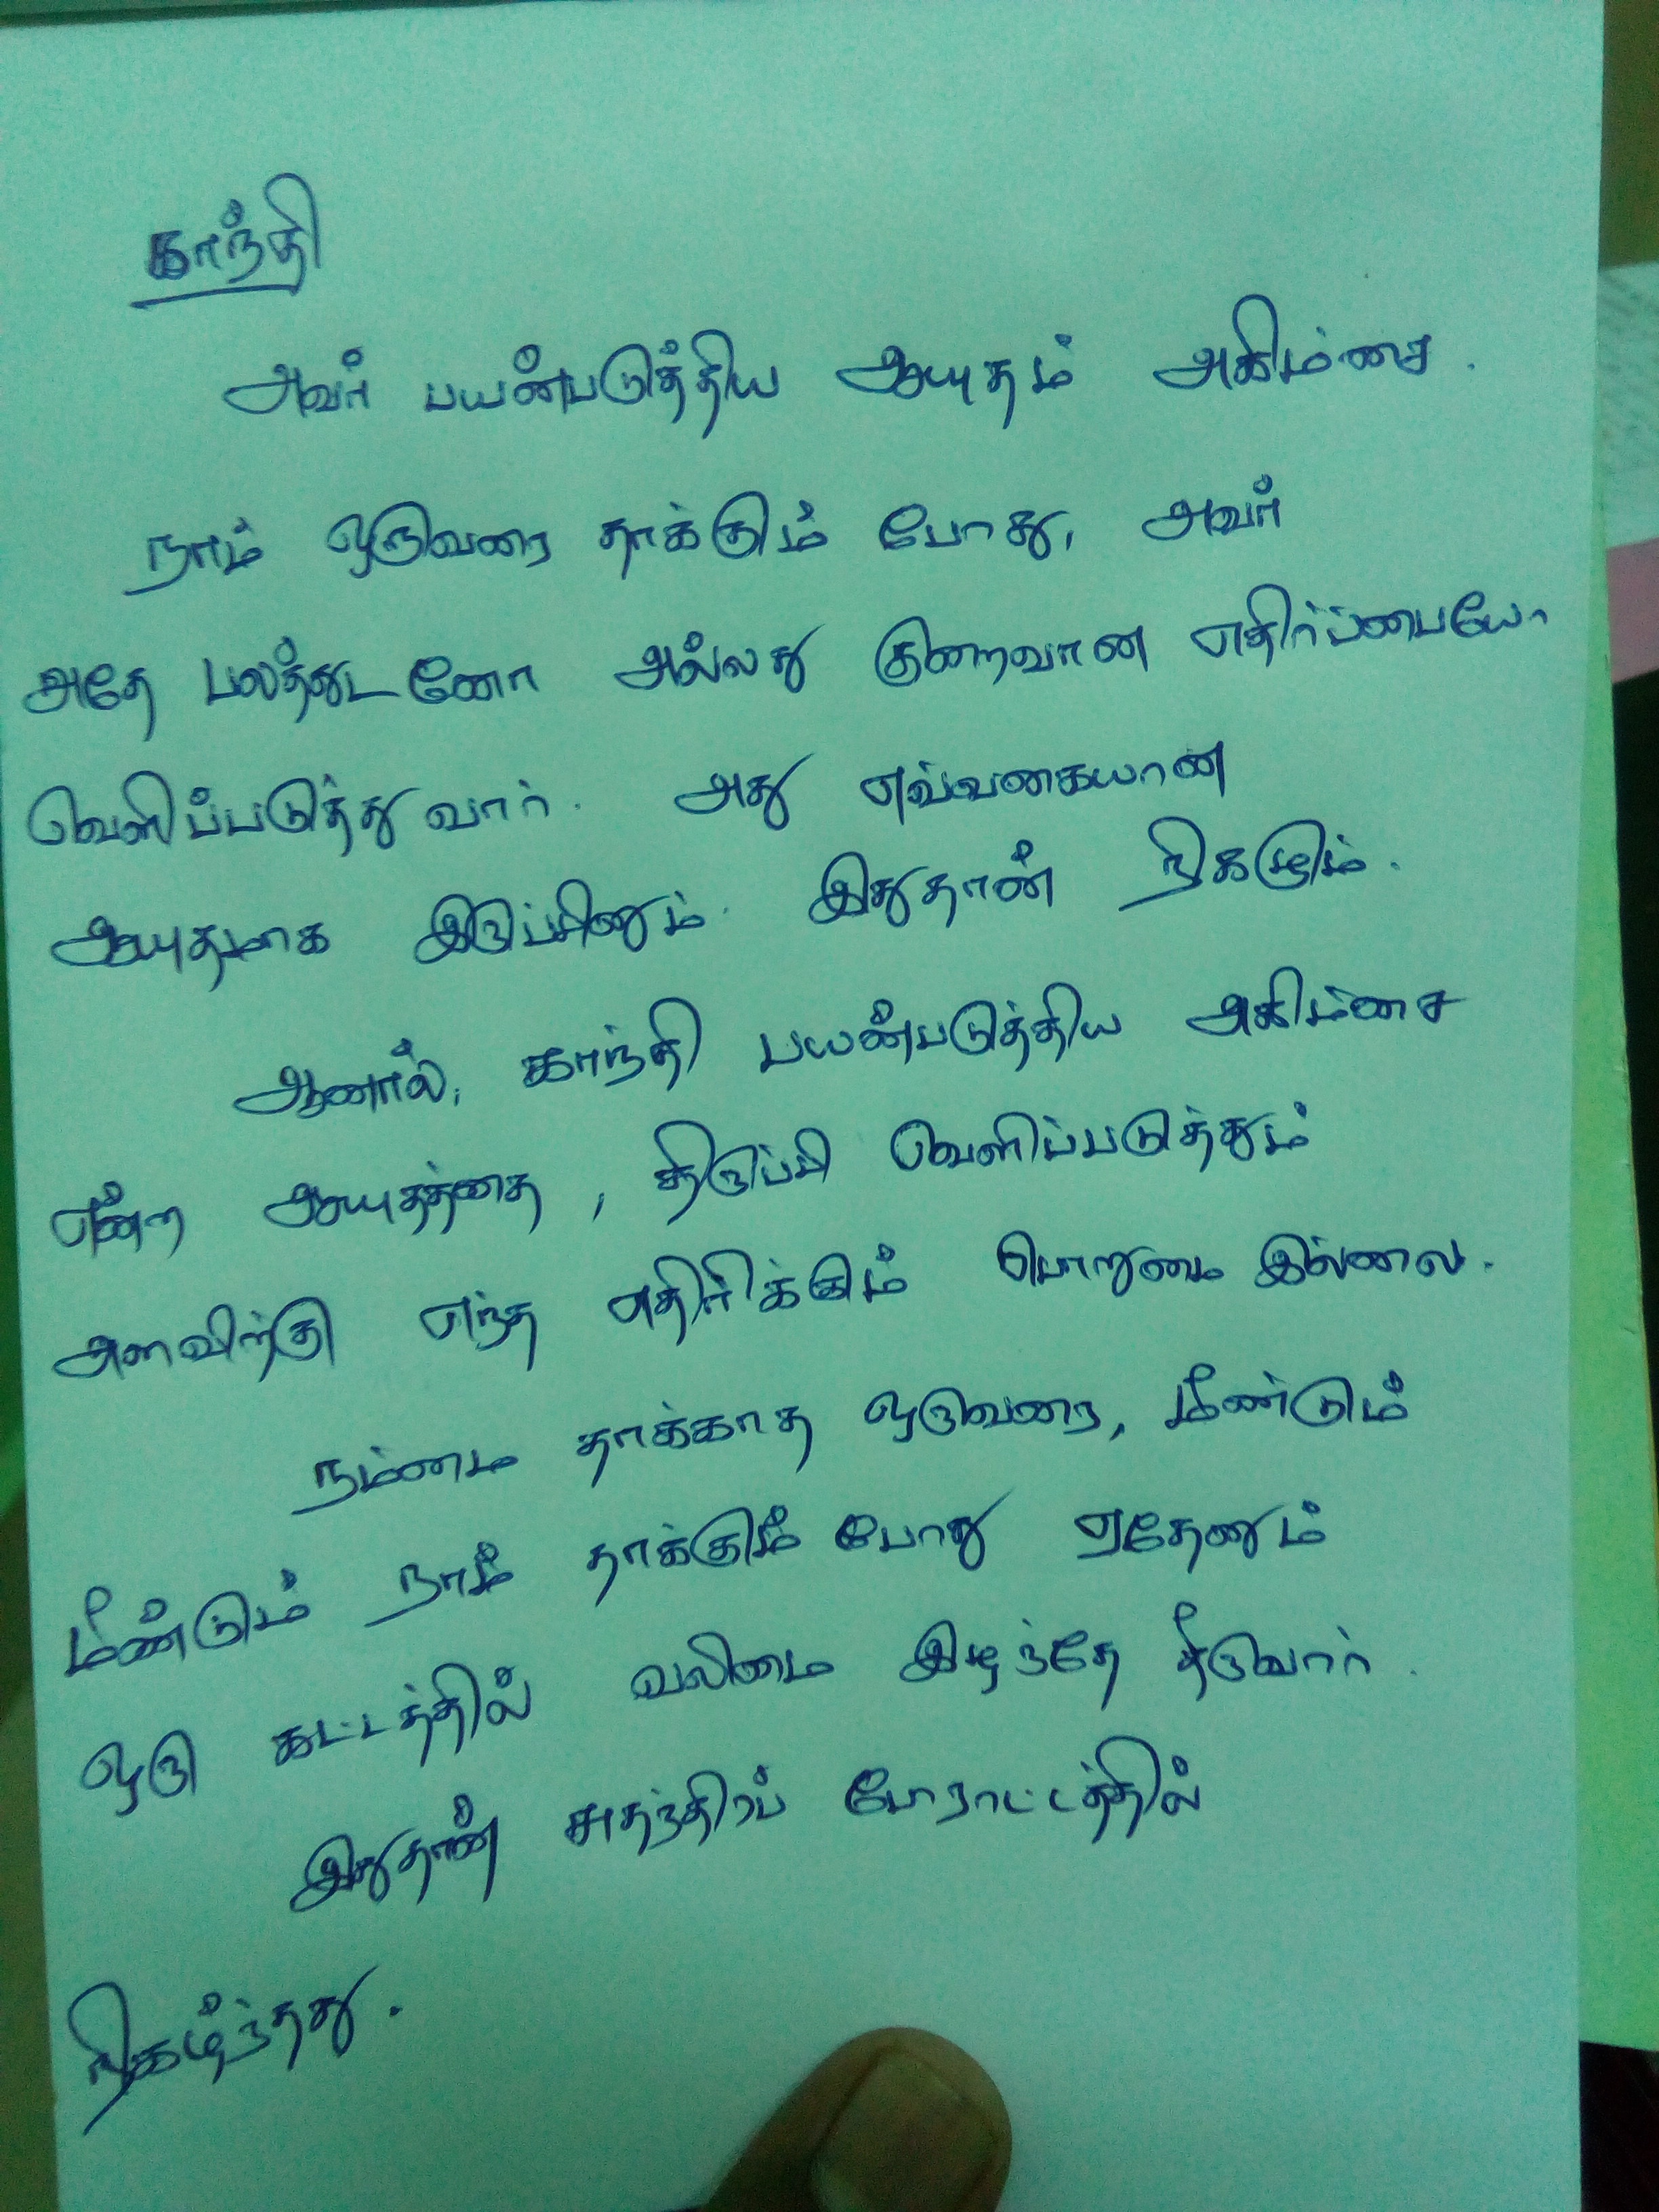 காந்தி
அவர் பயன்படுத்திய ஆயுதம் அகிம்சை.
நாம் ஒருவரை தாக்கும் போது, அவர்
அதே பலத்துடனோ அல்லது குறைவான எதிர்ப்பையோ
வெளிப்படுத்துவார். அது எவ்வகையான
ஆயுதமாக இருப்பினும். இதுதான் நிகழும்.
ஆனால், காந்தி பயன்படுத்திய அகிம்சை
என்ற ஆயுதத்தை, திருப்பி வெளிப்படுத்தும்
அளவிற்கு எந்த எதிரிக்கும் பொறுமை இல்லை.
நம்மை தாக்காத ஒருவரை, மீண்டும்
மீண்டும் நாம் தாக்கும் போது ஏதேனும்
ஒரு கட்டத்தில் வலிமை இழந்தே தீருவார்.
இதுதான் சுதந்திரப் போராட்டத்தில்
நிகழ்ந்தது.